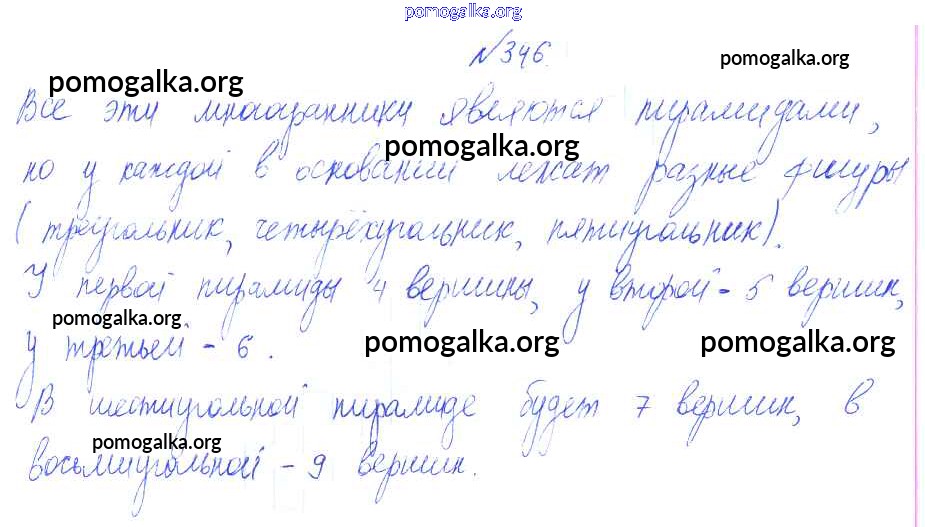 pomogalka.org
№346.
pomogalka.org
pomogalka.org
Все эти многогранники являются пирамидами,
pomogalka.org
но у каждой в основании лежат разные фигуры
(треугольник, четырёхугольник, пятиугольник).
У первой пирамиды 4 вершины, у второй - 5 вершин,
pomogalka.org
у третьей - 6.
pomogalka.org
pomogalka.org
В шестиугольной пирамиде будет 7 вершин, в
pomogalka.org
восьмиугольной - 9 вершин.